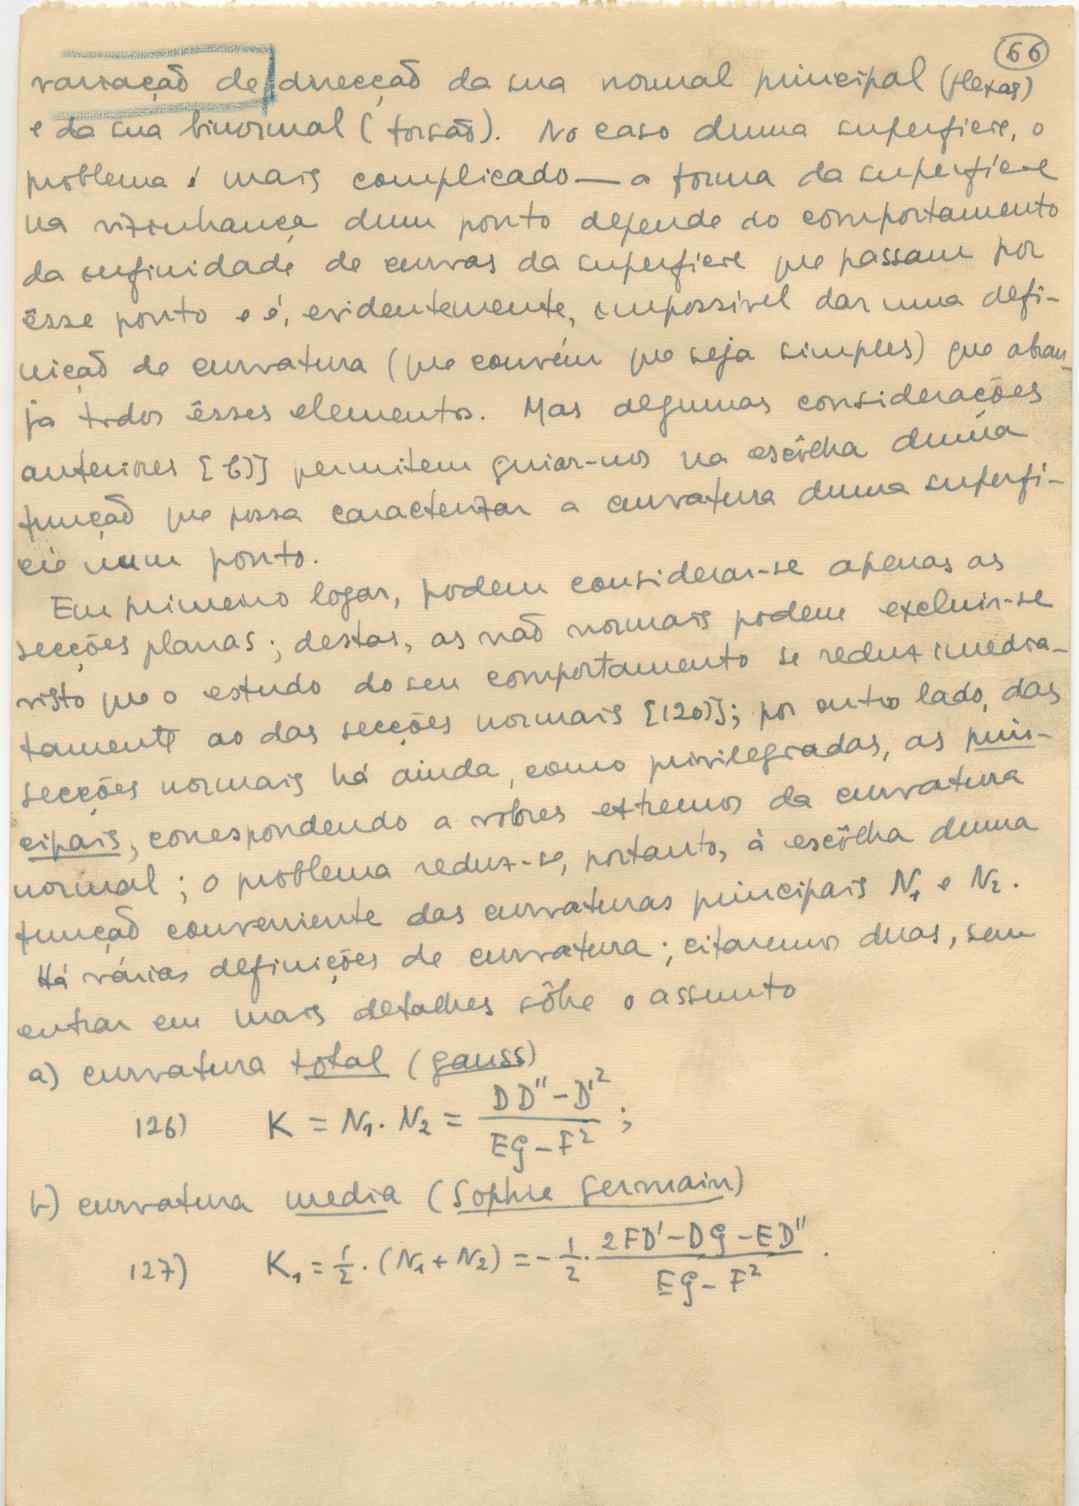 66
variação de direcção da sua normal principal (flexão)
e da sua binormal (torsão). No caso duma superfície, o
problema é mais complicado — a forma da superfície
na vizinhança dum ponto depende do comportamento
da infinidade de curvas da superfície que passam por
êsse ponto e é, evidentemente, impossível dar uma defi-
nição de curvatura (que convém que seja simples) que abran-
ja todos êsses elementos. Mas algumas considerações
anteriores permitem guiar-nos na escôlha duma
função que possa caracterizar a curvatura duma superfí-
cie num ponto.
Em primeiro logar, podem considerar-se apenas as
secções planas; destas, as não normais podem excluir-se
visto que o estudo do seu comportamento se reduz imedia-
tamente ao das secções normais [120)]; por outro lado, das
secções normais há ainda, como privilegiadas, as prin-
cipais, correspondendo a valores extremos da curvatura
normal; o problema reduz-se, portanto, à escôlha duma
função conveniente das curvaturas principais N₁ e N₂.
Há várias definições de curvatura; citaremos duas, sem
entrar em mais detalhes sôbre o assunto
a) curvatura total (gauss)
126) K = N₁. N₂ = \frac{DD'' - D'^2}{EG - F^2};
b) curvatura media (Sophie Germain)
127) K₁ = \frac{1}{2}. (N₁ + N₂) = -\frac{1}{2}. \frac{2FD' - DG - ED''}{EG - F^2}.